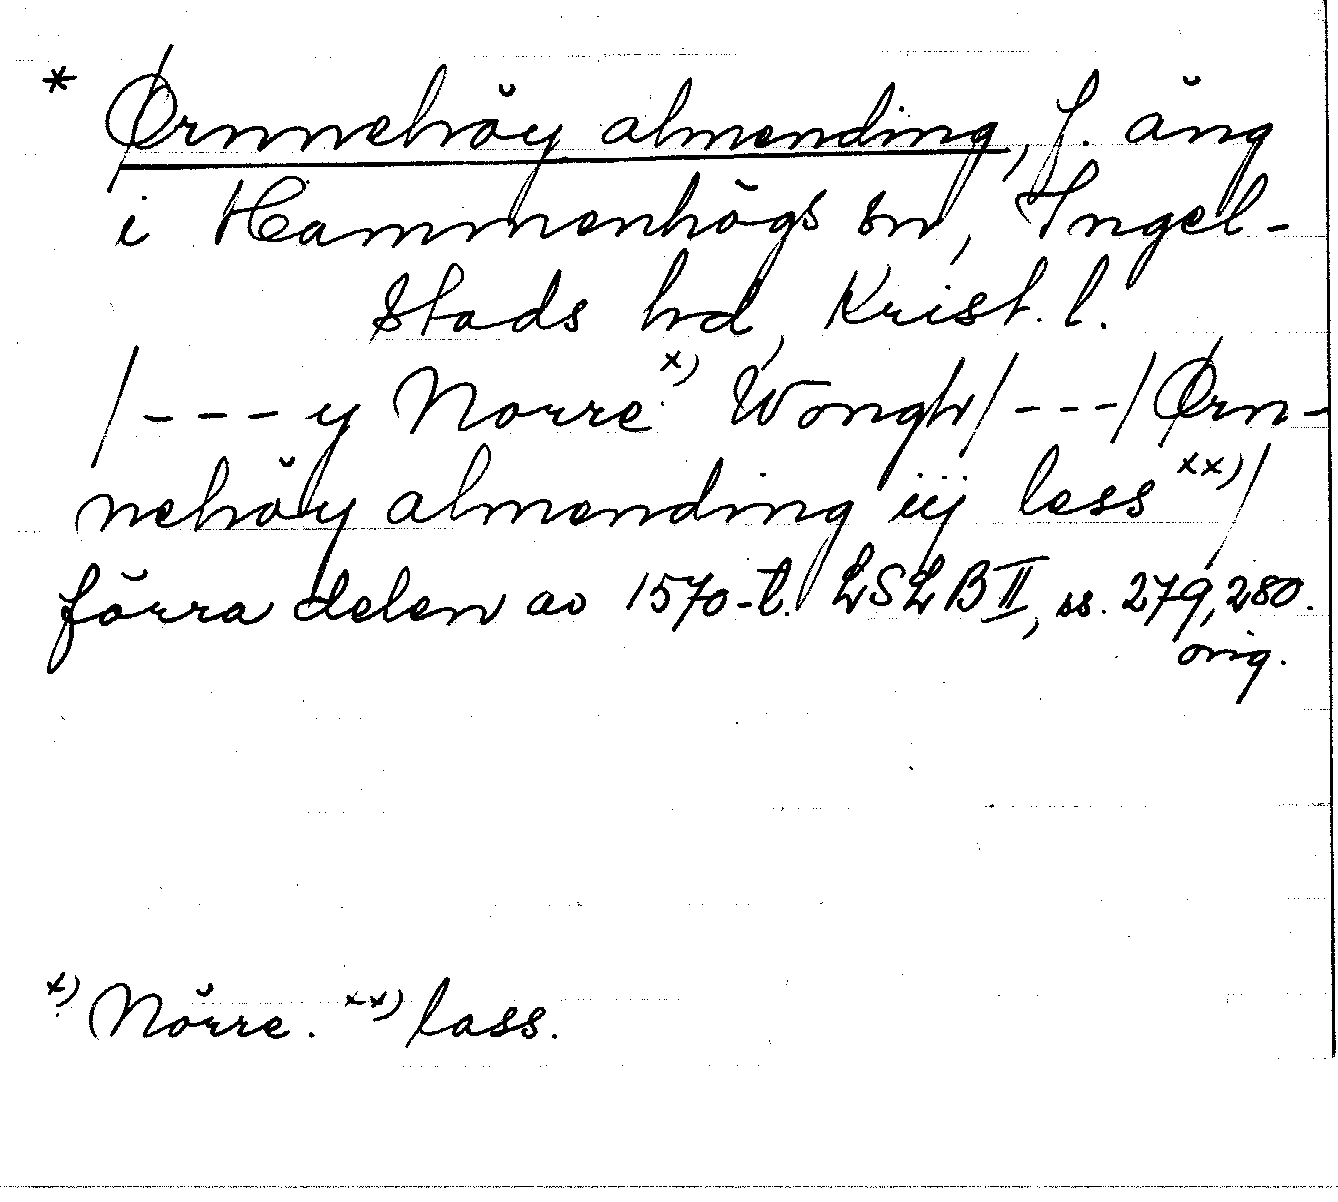 * Ørnnehöy almending, f. äng
i Hammenhögs sn, Ingel-
stads hd, Krist. l.
/---y Norre x) Wongh/---/Ørn-
nehöy almending iij less xx)/
förra delen av 1570-t. LSLB II, ss. 279, 280.
orig.
x) Nörre. xx) lass.